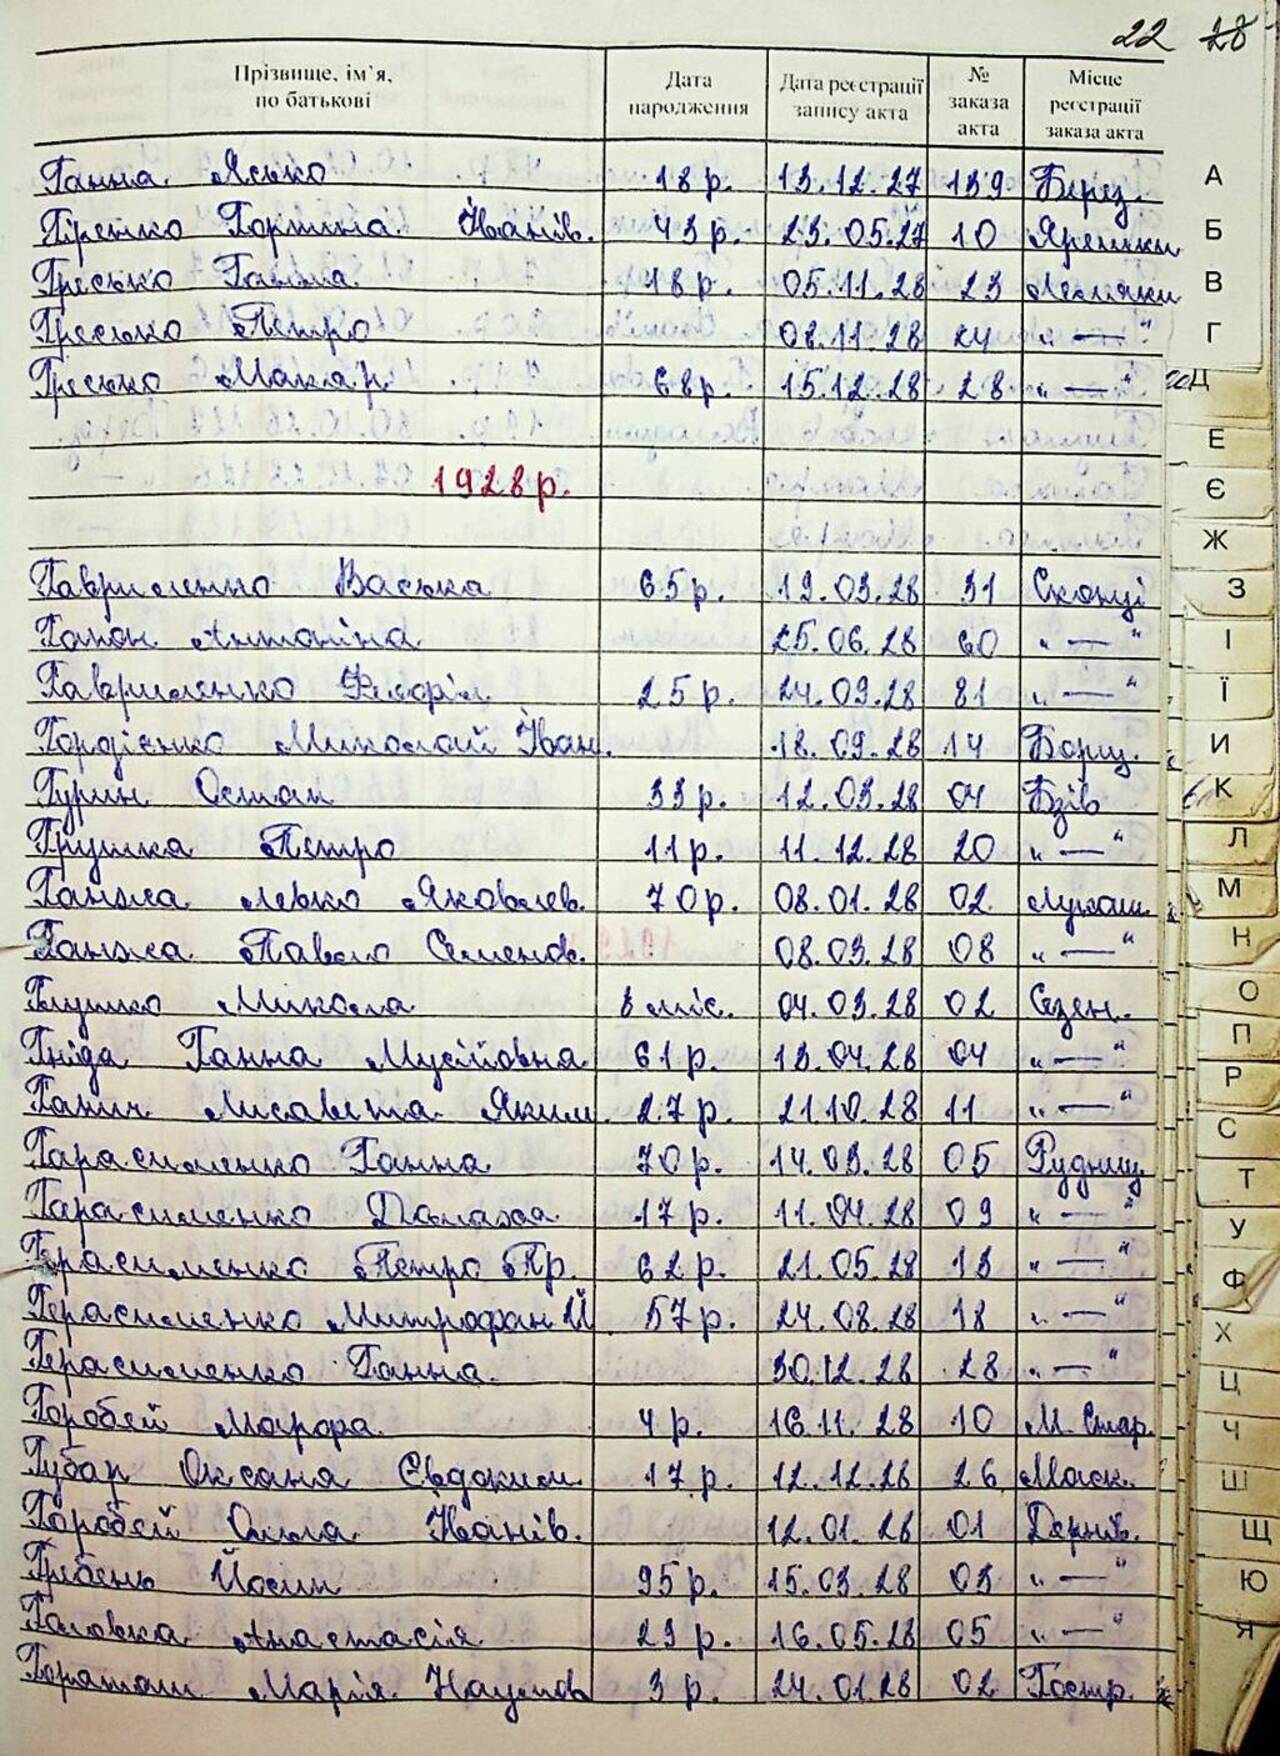 22 28
Прізвище, ім'я, по батькові Дата народження Дата реєстрації запису акта № заказа акта Місце реєстрації заказа акта
Ганна Ясько 18 р. 13.12.27 139 Берез.
Гіренко Горпина Іванів. 43 р. 23.05.27 10 Ярешки
Гресько Ганна 18 р. 05.11.28 23 Лемляки
Гресько Петро 08.11.28 24 „ — “
Гресько Макар 68 р. 15.12.28 28 „ — “
1928 р.
Гавриленко Васька 65 р. 19.03.28 31 Скопці
Гапон Антоніна 25.06.28 60 „ — “
Гавриленко 25 р. 24.09.28 81 „ — “
Гордієнко Миколай Іван. 18.09.28 14 Борщ.
Гурин Остап 33 р. 12.03.28 04 Бзів
Грушка Петро 11 р. 11.12.28 20 „ — “
Ганжа Левко Яковлев. 70 р. 08.01.28 02 Лукаш.
Ганжа Павло Семенов. 08.03.28 08 „ — “
Глушко Микола 8 міс. 04.03.28 02 Сезен.
Гніда Ганна Мусіївна 61 р. 13.04.28 04 „ — “
Ганич Лисавета Яким 27 р. 21.10.28 11 „ — “
Гарасименко Ганна 70 р. 14.03.28 05 Рудниц
Гарасименко Палажа 17 р. 11.04.28 09 „ — “
Герасименко Петро Пр. 62 р. 21.05.28 13 „ — “
Герасименко Митрофан Й 57 р. 24.08.28 18 „ — “
Герасименко Ганна 30.12.28 28 „ — “
Горобей Марфа 4 р. 16.11.28 10 М. Стар.
Губар Оксана Євдоким 17 р. 12.12.28 26 Маск.
Горобей Олла Іванів. 12.01.28 01 Дернів.
Гребень Йосип 95 р. 15.03.28 03 „ — “
Головка Анастасія 29 р. 16.05.28 05 „ — “
Марія Наумов 3 р. 24.01.28 02 Гостр.
А
Б
В
Г
Д
Е
Є
Ж
З
І
Ї
И
К
Л
М
Н
О
П
Р
С
Т
У
Ф
Х
Ц
Ч
Ш
Щ
Ю
Я